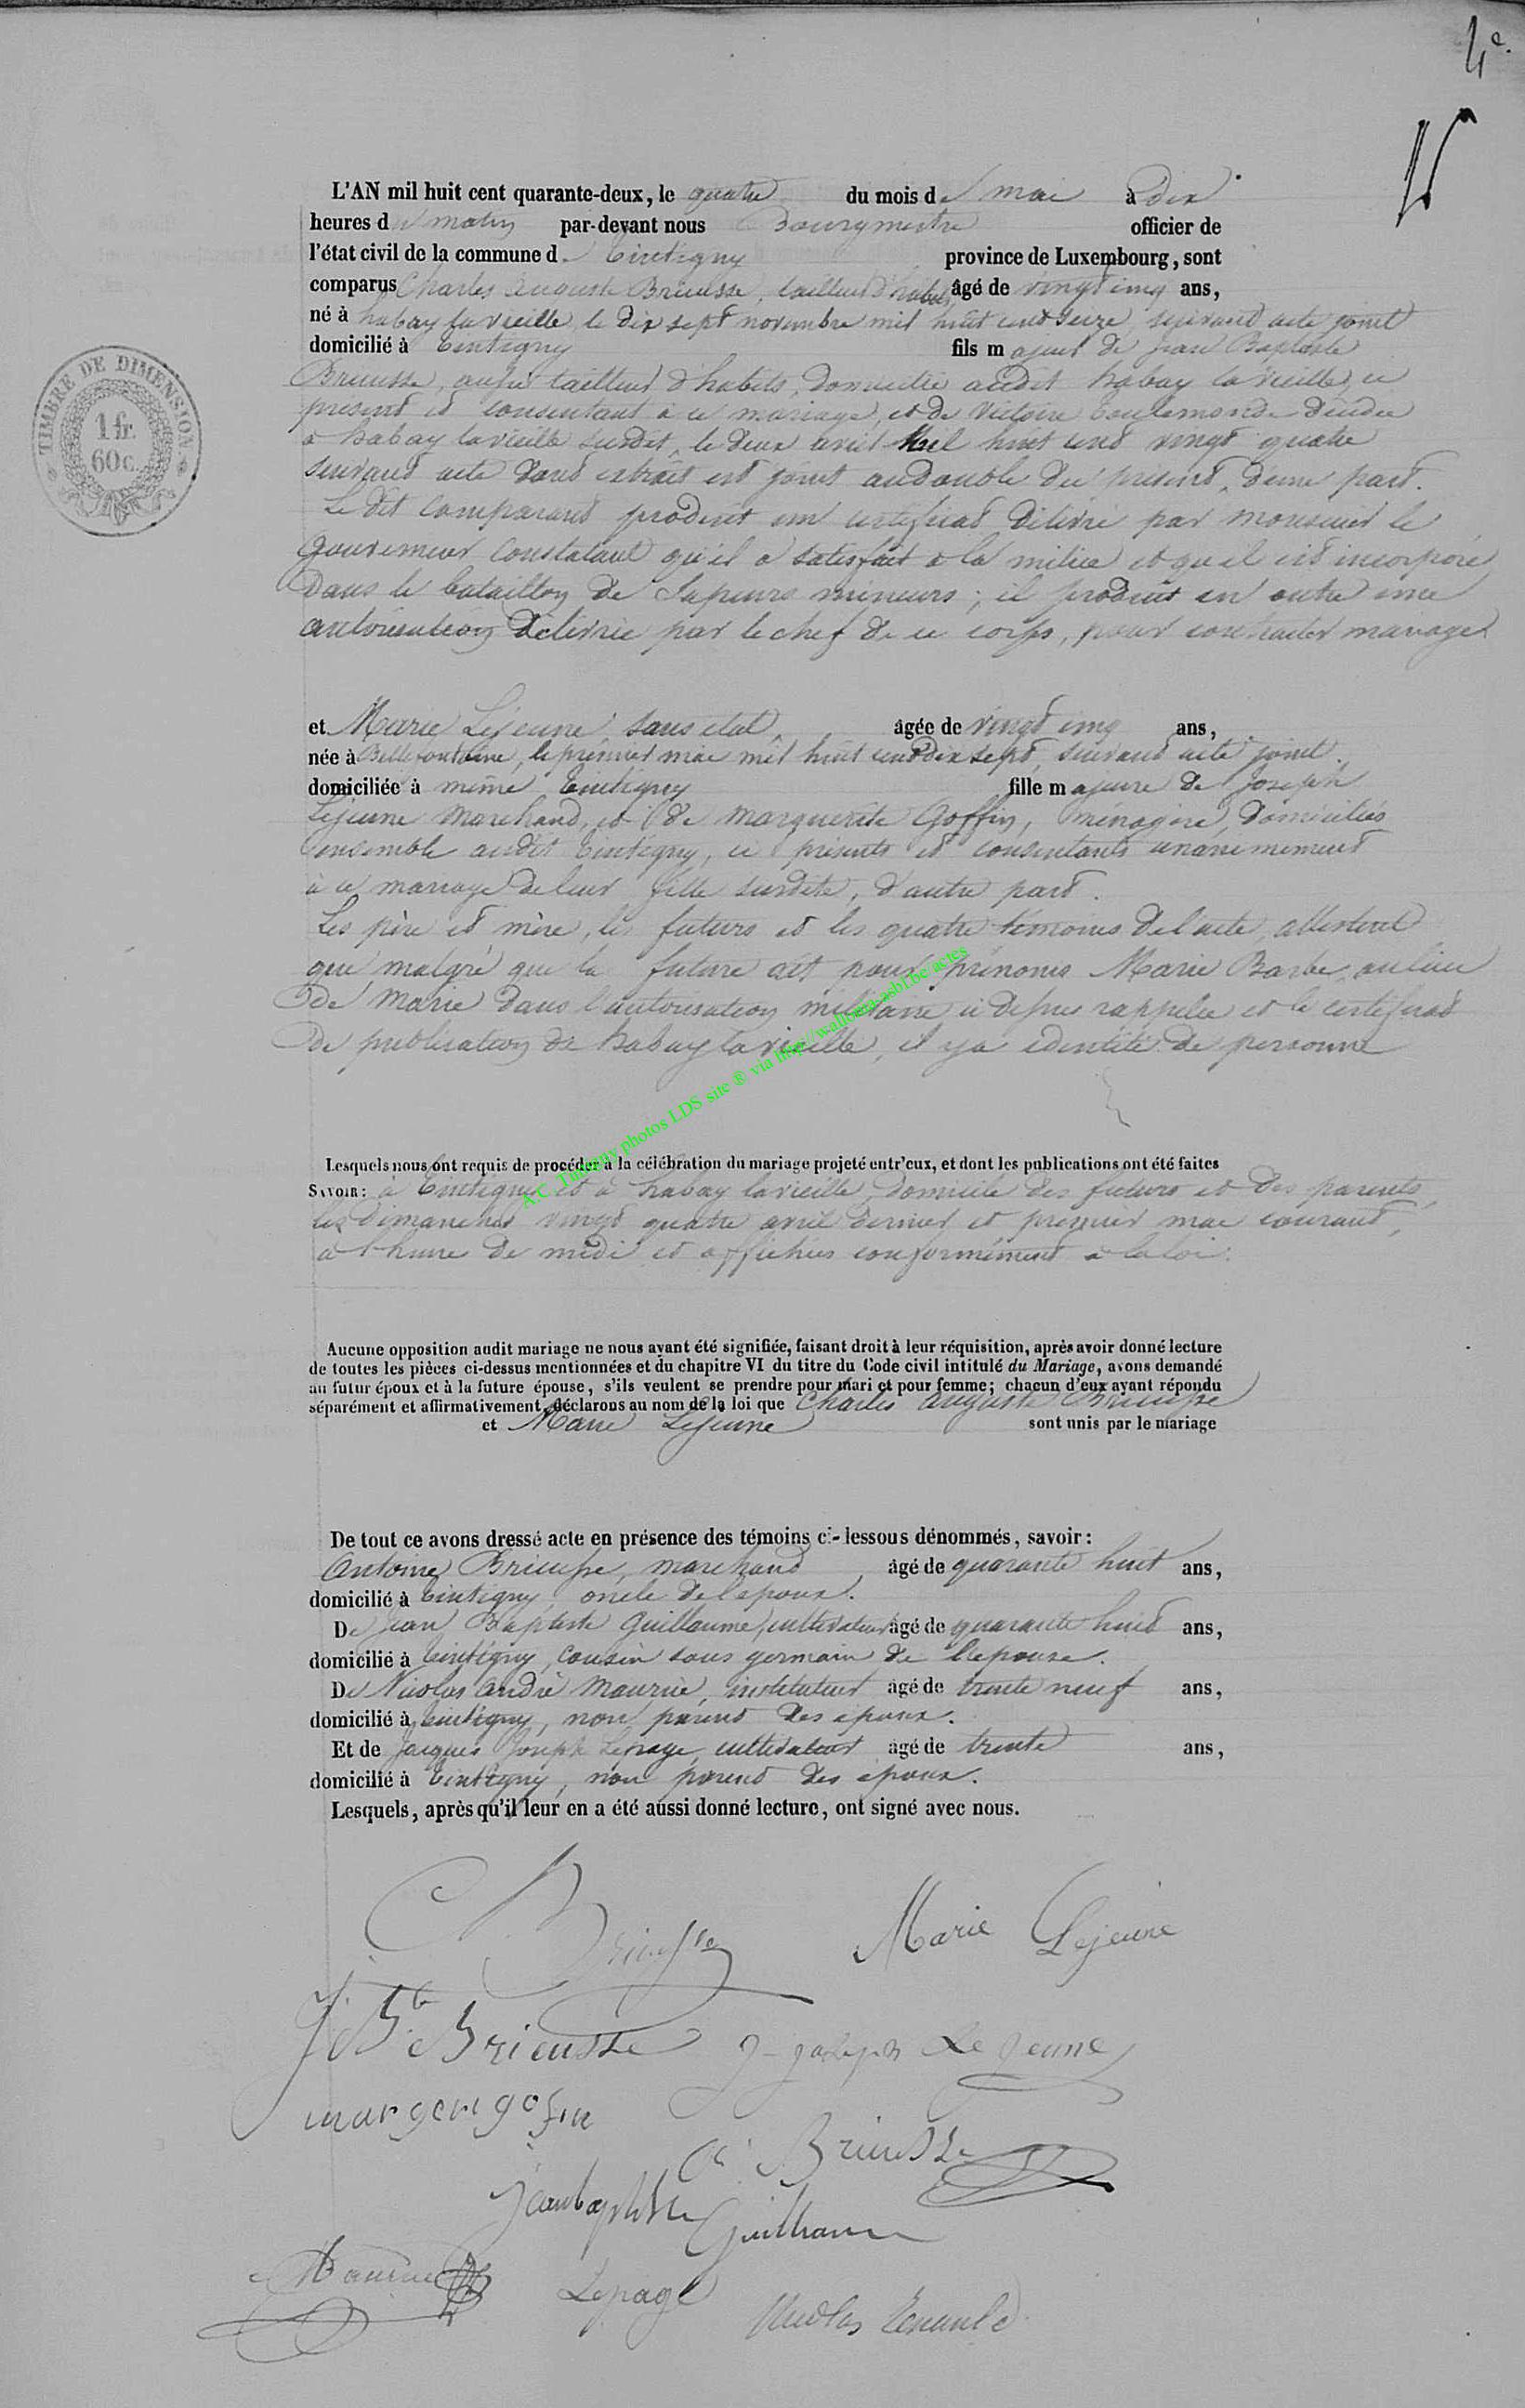 4e.
L'AN mil huit cent quarante-deux, le quatre du mois de mai à dix
heures du matin par-devant nous Bourgmestre officier de
l'état civil de la commune de Tintigny province de Luxembourg, sont
comparus Charles Auguste Brieusse, tailleur d'habits, âgé de vingt cinq ans,
né à habay la vieille, le dix sept novembre mil huit cent seize, suivant acte joint
domicilié à Tintigny fils majeur de Jean Baptiste
Brieusse, aussi tailleur d'habits, domicilié audit habay la vieille, ci
présent et consentant à ce mariage, et de Victoire Toulemonde décédée
à habay la vieille susdit, le deux avril mil huit cent vingt quatre
suivant acte dont extrait est joint au double du présent, d'une part.
Le dit comparant produit un certificat délivré par monsieur le
Gouverneur constatant qu'il a satisfait à la milice et qu'il est incorporé
dans le bataillon de Sapeurs mineurs ; il produit en outre une
autorisation délivrée par le chef de ce corps, pour contracter mariage
et Marie Lejeune, sans état, âgée de vingt cinq ans,
née à Bellefontaine, le premier mai mil huit cent dix sept, suivant acte joint.
domiciliée à même Tintigny fille majeure de Joseph
Lejeune marchand, et de Marguerite Goffin, ménagère, domiciliés
ensemble audit Tintigny, ci présents et consentants unanimement
à ce mariage de leur fille susdite, d'autre part.
Les père et mère, les futurs et les quatre témoins de l'acte, attestent
que malgré que la future ait pour prénoms Marie Barbe au lieu
de Marie dans l'autorisation militaire ci dessus rappelée et le certificat
de publication de habay la vieille, il y a identité de personne
A.C. Tintigny photos LDS site ® via http://wallonia-asbl.be/actes
Lesquels nous ont requis de procéder à la célébration du mariage projeté entr'eux, et dont les publications ont été faites
SAVOIR : à Tintigny et à habay la vieille, domicile des futurs et des parents,
les dimanches vingt quatre avril dernier et premier mai courant,
à l'heure de midi et affichées conformément à la loi.
Aucune opposition audit mariage ne nous ayant été signifiée, faisant droit à leur réquisition, après avoir donné lecture
de toutes les pièces ci-dessus mentionnées et du chapitre VI du titre du Code civil intitulé du Mariage, avons demandé
au futur époux et à la future épouse, s'ils veulent se prendre pour mari et pour femme; chacun d'eux ayant répondu
séparément et affirmativement, déclarons au nom de la loi que Charles Auguste Brieusse
et Marie Lejeune sont unis par le mariage
De tout ce avons dressé acte en présence des témoins ci-dessous dénommés, savoir :
Antoine Brieusse, marchand, âgé de quarante huit ans,
domicilié à Tintigny, oncle de l'époux.
De Jean Baptiste Guillaume, cultivateur âgé de quarante huit ans,
domicilié à Tintigny, cousin sous germain de l'épouse.
De Nicolas André Maurice, instituteur âgé de trente neuf ans,
domicilié à Tintigny, non parent des époux.
Et de Jacques Joseph Lepage, cultivateur âgé de trente ans,
domicilié à Tintigny, non parent des époux.
Lesquels, après qu'il leur en a été aussi donné lecture, ont signé avec nous.
TIMBRE DE DIMENSION
1 fr.
60 c.
C Brieusse Marie Lejeune
J Bte Brieusse J-Joseph LeJeune
margerigofin
A Brieusse
Jeanbaptiste Guilliaume
Maurice Lepage Nicolas